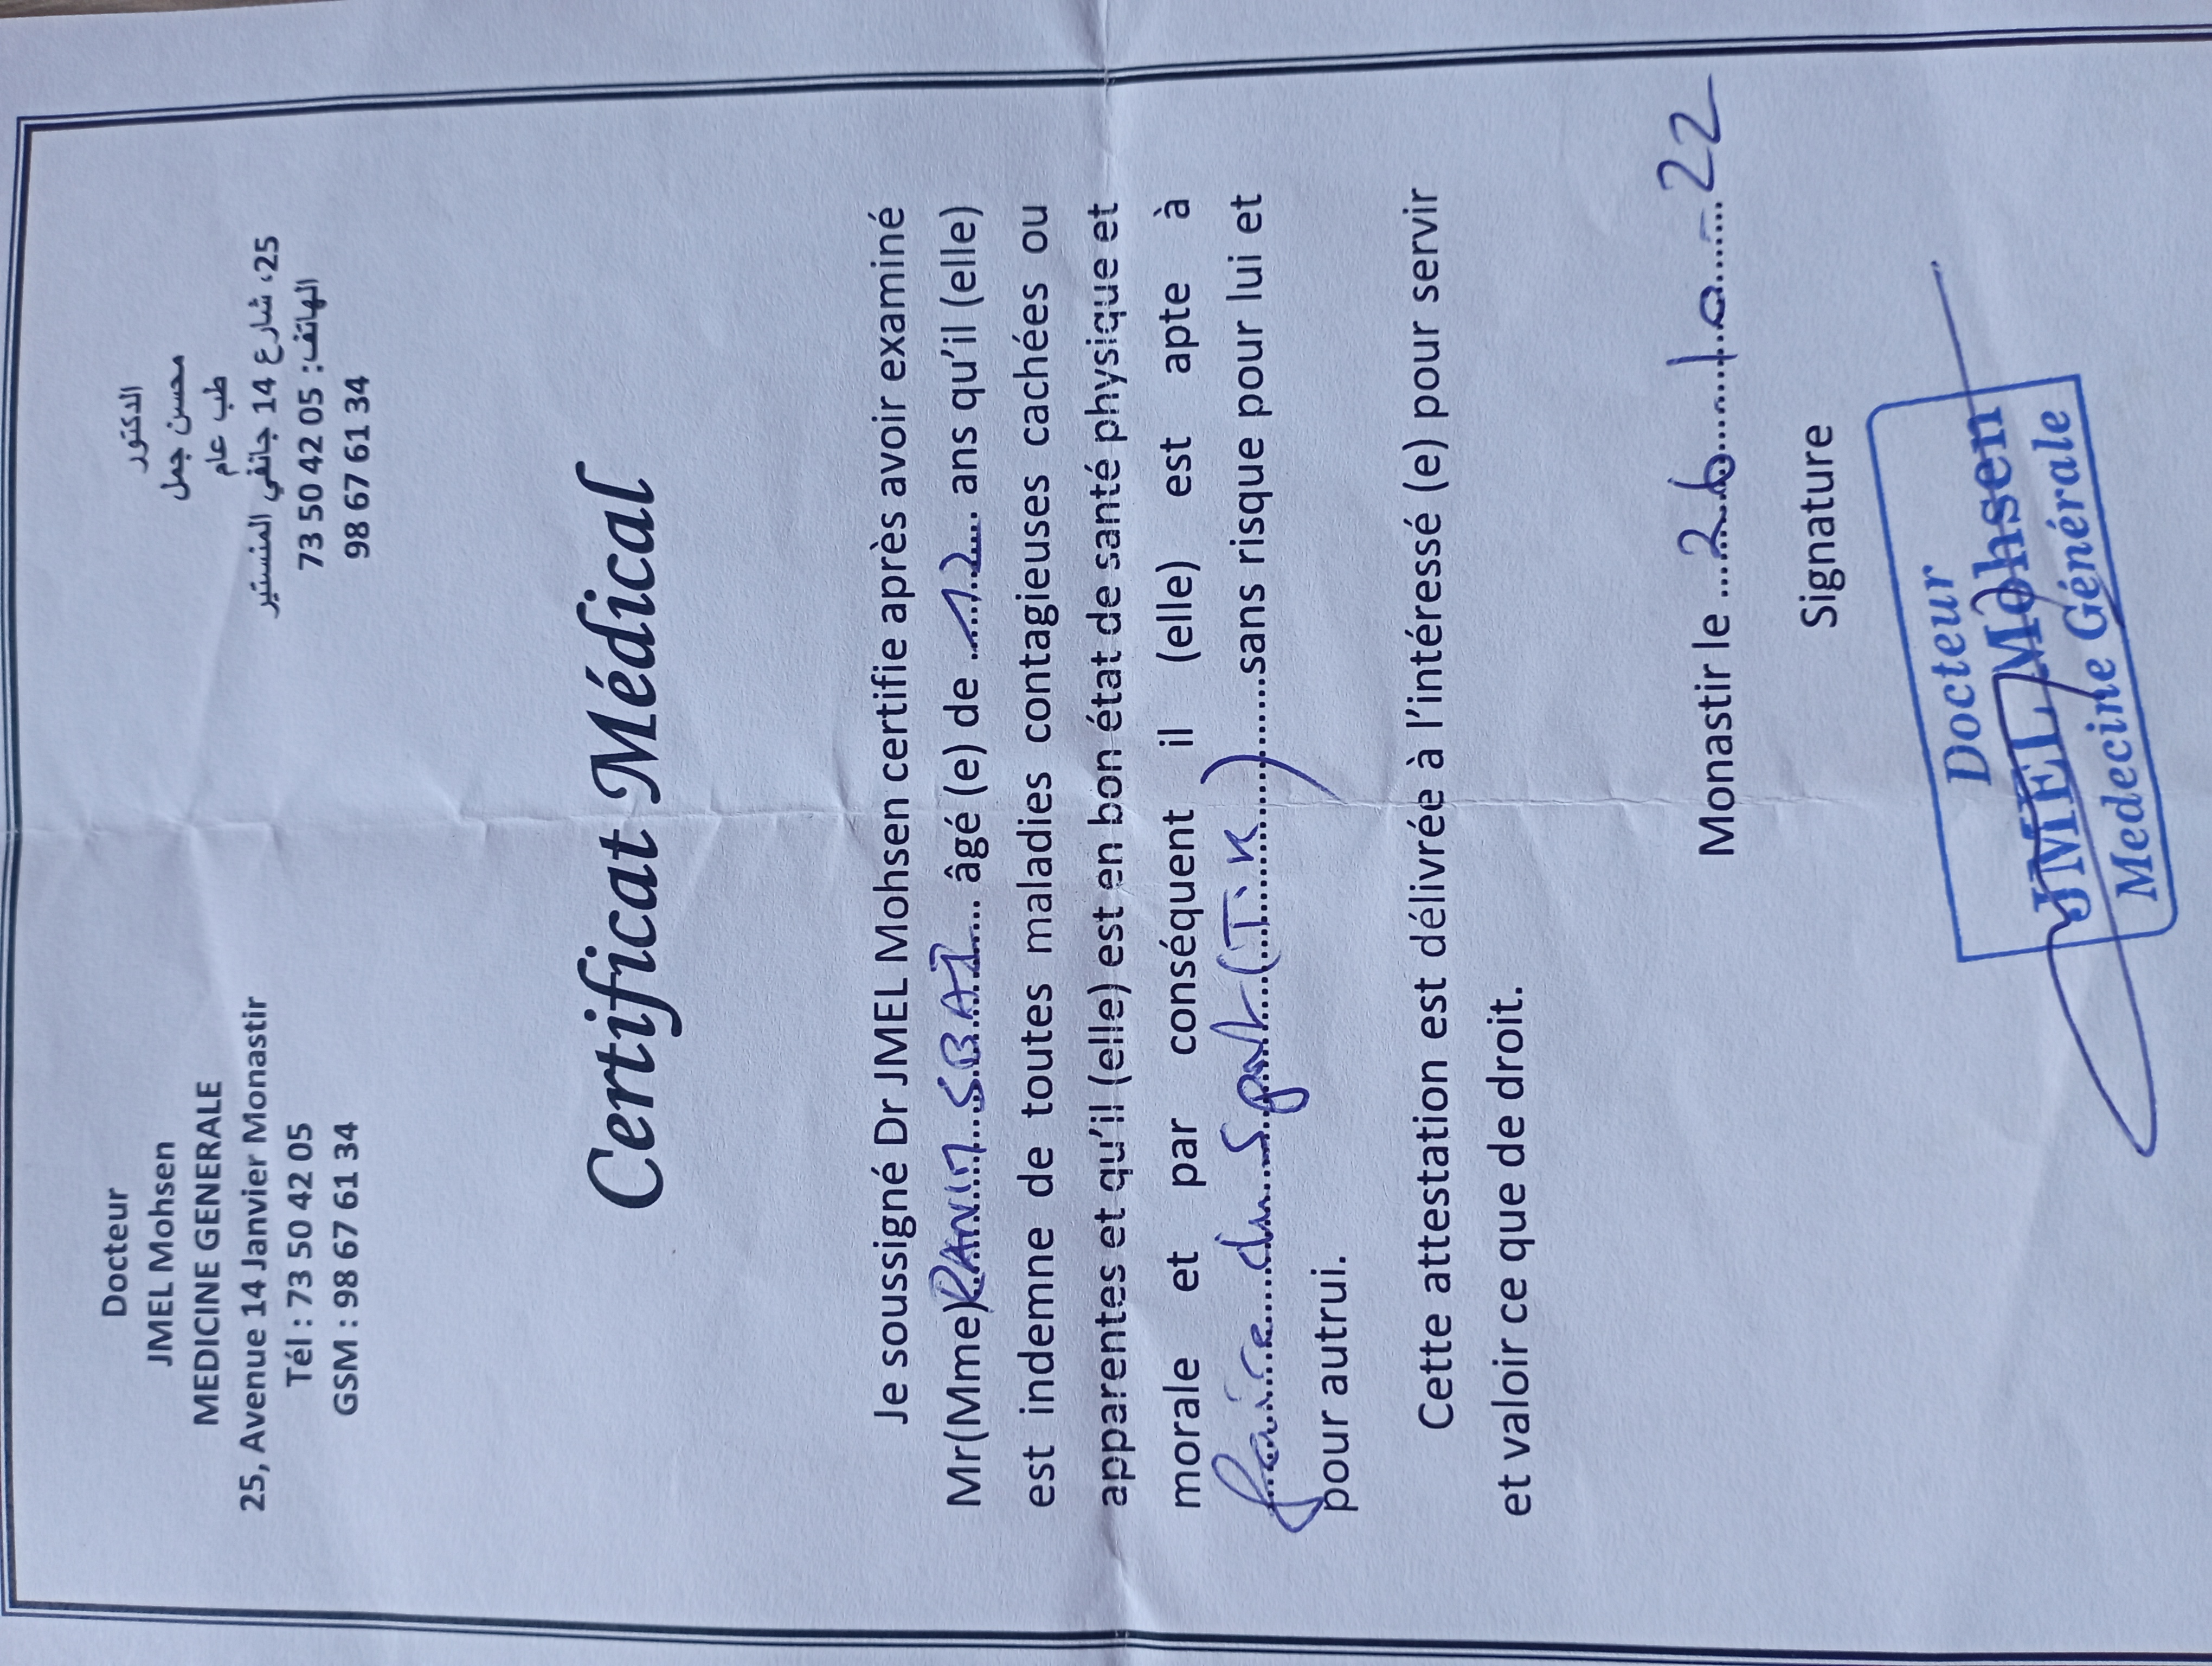 Docteur
JMEL Mohsen
MEDICINE GENERALE
25, Avenue 14 Janvier Monastir
Tél : 73 50 42 05
GSM : 98 67 61 34
الدكتور
محسن جمل
طب عام
25، شارع 14 جانفي المنستير
الهاتف: 73 50 42 05
98 67 61 34
Certificat Médical
Je soussigné Dr JMEL Mohsen certifie après avoir examiné
Mr(Mme) SBAI âgé (e) de 12 ans qu'il (elle)
est indemne de toutes maladies contagieuses cachées ou
apparentes et qu'il (elle) est en bon état de santé physique et
morale et par conséquent il (elle) est apte à
faire du Sport ( ) sans risque pour lui et
pour autrui.
Cette attestation est délivrée à l'intéressé (e) pour servir
et valoir ce que de droit.
Monastir le 26 10 - 22
Signature
Docteur
JMEL Mohsen
Medecine Générale